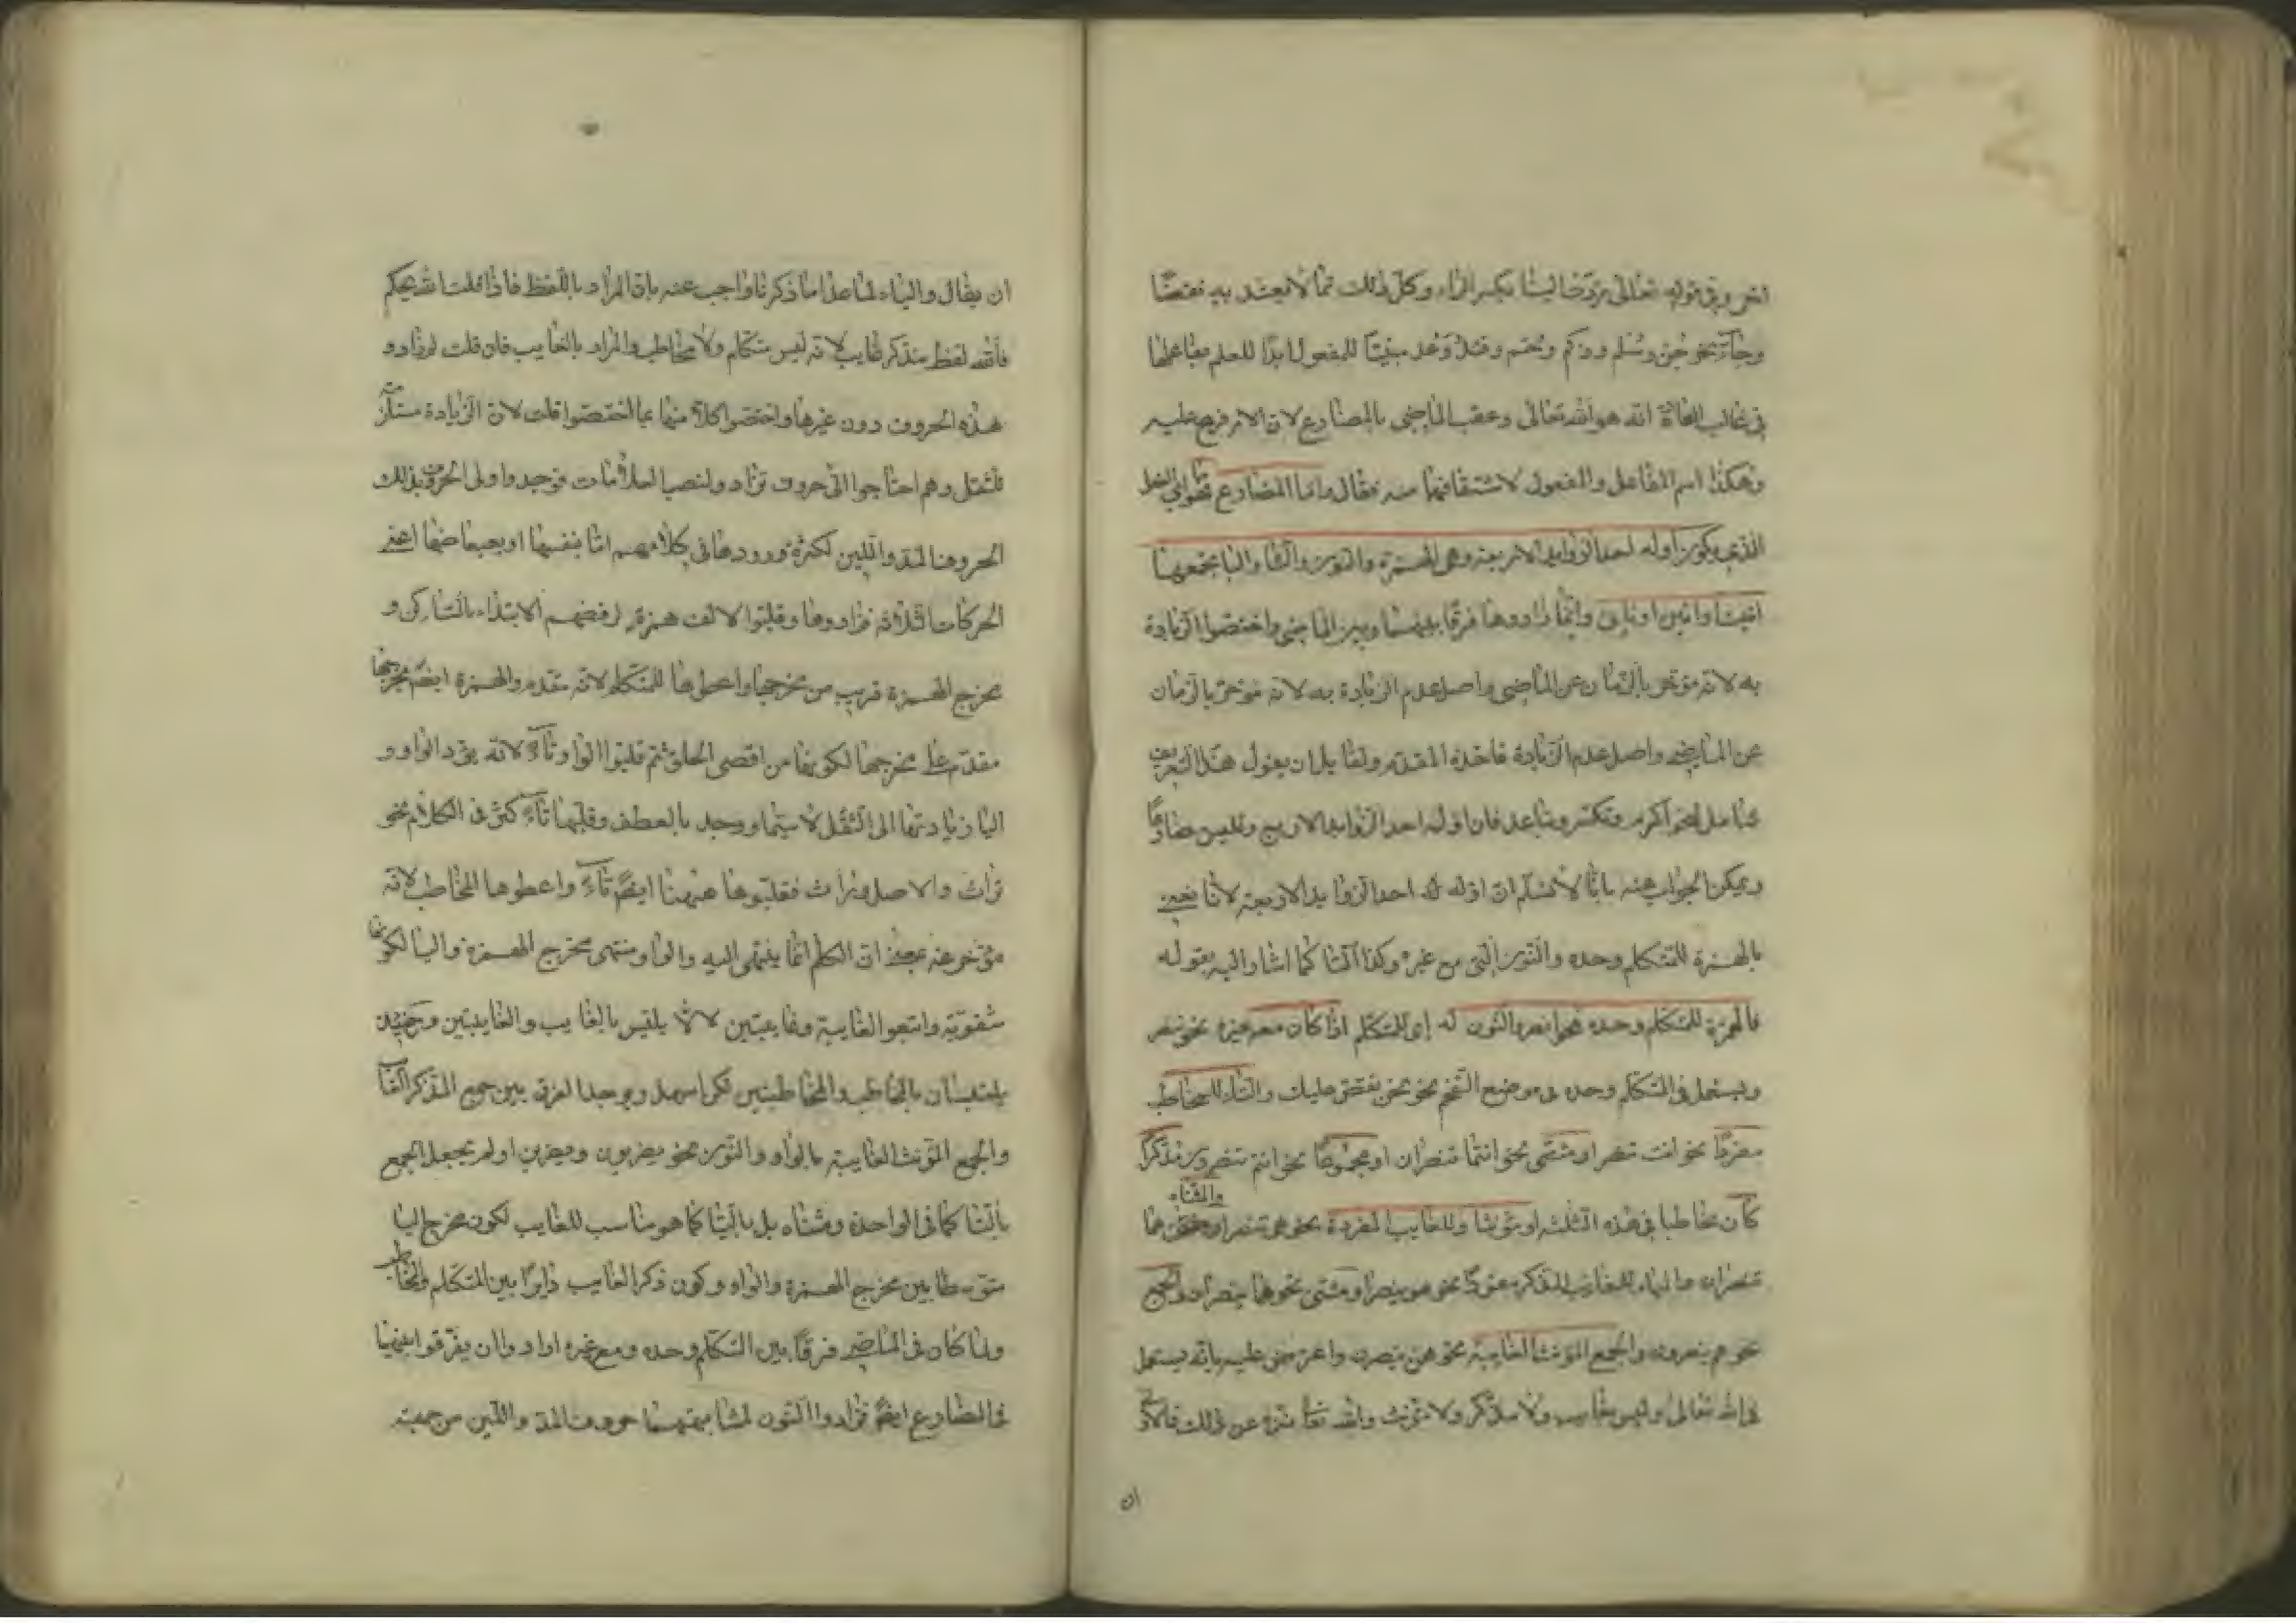 اخر وفي قوله تعالى ردت الينا بكسر الراء وكل ذلك مما لا يعتد به نقضا
وجاء نحو جن وسل وزكم وحم وفئد ووعد مبنيا للمفعول ابدا للعلم بفاعلها
في غالب العادة انه هو الله تعالى وعقب الماضي بالمضارع لان الامر فرع عليه
وهكذا اسم الفاعل والمفعول لاشتقاقهما منه فقال واما المضارع فهو الفعل
الذي يكون اوله احد الزوايد الاربعة وهي الهمزة والنون والتا واليا يجمعها
انيت او اتين او ناتي وانما زادوها فرقا بينهما وبين الماضي واختصوا الزيادة
به لانه مؤخر بالزمان عن الماضي واصل عدم الزيادة به لانه مؤخر بالزمان
عن الماضي واصل عدم الزيادة فاخذه المقدم ولقايل ان يقول هذا التعريف
شامل لنحو اكرم وتكسر وتباعد فان اوله احد الزوايد الاربع وليس مضارعا
ويمكن الجواب عنه بانا لا نسلم ان اوله احد الزوايد الاربعة لانا نعني
بالهمزة للمتكلم وحده والنون التي مع غيره وكذا التا كما اشار اليه بقوله
فالهمزة للمتكلم وحده نحو انصر والنون له اي للمتكلم اذا كان معه غيره نحو ننصر
ويستعمل في المتكلم وحده في موضع التفخيم نحو نحن نقص عليك والتاء للمخاطب
مفردا نحو انت تنصر او مثنى نحو انتما تنصران او مجموعا نحو انتم تنصرون مذكرا
كان مخاطبا في هذه الثلثة او مؤنثا وللغايب المفردة نحو هي تنصر والمثناه نحو هما
تنصران والياء للغايب المذكر مفردا نحو هو ينصر او مثنى نحو هما ينصران والجمع
نحو هم ينصرون والجمع المؤنث الغايبة نحو هن ينصرن واعترض عليه بانه يستعمل
في الله تعالى وليس بغايب ولا مذكر ولا مؤنث والله تعا منزه عن ذلك فالاولى
ان
ان يقال والياء لما عدا ما ذكرنا واجب عنه بان المراد باللفظ فاذا قلت الله يحكم
فالله لفظ مذكر غايب لانه ليس متكلم ولا مخاطب والمراد بالغايب فان قلت لم زادوا
هذه الحروف دون غيرها واختصوا كلا منها بما اختصوا قلت لان الزيادة مستلزمة
للثقل وهم احتاجوا الى حروف تزاد ولنصب العلامات فوجدوا اولى الحروف بذلك
الحروف المد واللين لكثرة دورودها في كلامهم اما بنفسها او بعباضها اعني
الحركات الثلاثة فزادوها وقلبوا الالف همزة لرفضهم الابتداء بالساكن و
مخرج الهمزة قريب من مخرجها واعطوها للمتكلم لانه مقدم والهمزة ايضا مخرجها
مقدم على مخرجها لكونها من اقصى الحلق ثم قلبوا الواو تاء لانه يؤد الواو و
اليا زيادتها الى الثقل لا سيما ووجد بالعطف وقلبها تاء كثر في الكلام نحو
تراث والاصل وراث فقلبوها ههنا ايضا تاء واعطوها المخاطب لانه
مؤخر عنه بمعنى ان الكلام انما ينتهي اليه والواو منتهى مخرج الهمزة واليا لكونها
شفوية واتبعوا الغايبة وغايبتين لالا يلتبس بالغايب والغايبتين وحينئذ
يلتبسان بالمخاطب والمخاطبتين لكن اسهل ويوجد الفرق بين جمع المذكر الغايب
والجمع المؤنث الغايبة بالواو والنون نحو يضربون ويضربن او لم يجعل الجمع
بالتا كما في الواحدة ومثناه بل باليا كما هو مناسب للغايب لكون مخرج اليا
متوسطا بين مخرج الهمزة والواو وكون ذكر الغايب دايرا بين المتكلم والمخاطب
ولما كان في الماضي فرقا بين المتكلم وحده ومع غيره ارادوا ان يفرقوا بينهما
في المضارع ايضا فزادوا النون لمشابهتها حروف المد واللين من جهة